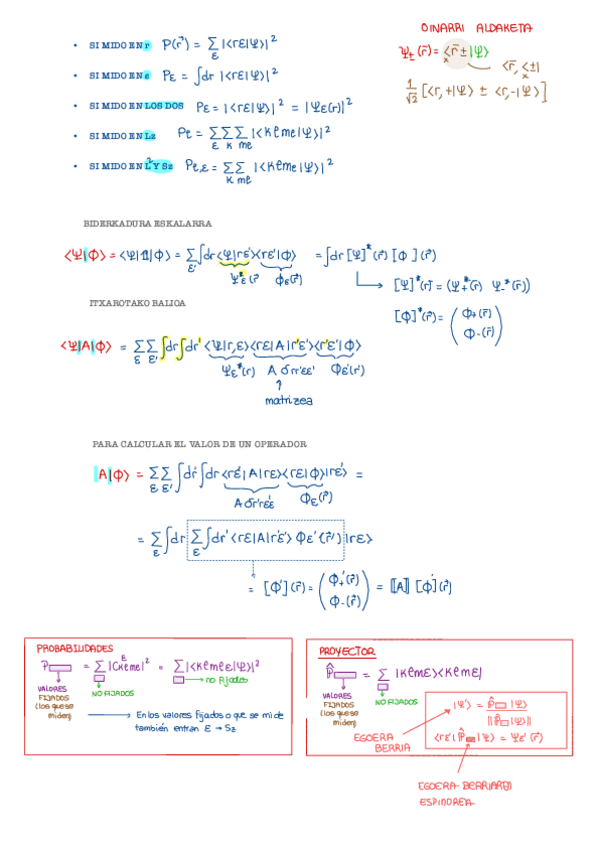 OINARRI ALDAKETA
• SI MIDO EN r P(r⃗) = Σ_ε |<rε|Ψ>|²
Ψ±(r̄) = <r̄ ±|Ψ>
<r̄, <±|
• SI MIDO EN e Pε = ∫dr |<rε|Ψ>|²
1/√2 [<r,+|Ψ> ± <r,-|Ψ>]
• SI MIDO EN LOS DOS Pε = |<rε|Ψ>|² = |Ψε(r)|²
• SI MIDO EN Lz Pe = Σ_ε Σ_K Σ_me |<Keme|Ψ>|²
• SI MIDO EN L² Y Sz Pe,ε = Σ_K Σ_me |<Keme|Ψ>|²
BIDERKADURA ESKALARRA
<Ψ|Φ> = <Ψ|𝟙|Φ> = Σ_ε' ∫dr <Ψ|rε'><rε'|Φ> = ∫dr [Ψ]*(r⃗) [Φ](r⃗)
Ψ*ε(r⃗ Φε(r⃗)
[Ψ]*(r) = (Ψ+*(r⃗) Ψ-*(r⃗))
ITXAROTAKO BALIOA
[Φ]*(r⃗) = (Φ+(r⃗)
Φ-(r⃗))
<Ψ|A|Φ> = Σ_ε Σ_ε' ∫dr ∫dr' <Ψ|r,ε><rε|A|r'ε'><r'ε'|Φ>
Ψε*(r) A σrr'εε' Φε'(r')
↑
matrizea
PARA CALCULAR EL VALOR DE UN OPERADOR
|A|Φ> = Σ_ε Σ_ε' ∫dr' ∫dr <rε'|A|rε><rε|Φ>|rε'> =
A σr'rε'ε Φε(r⃗)
= Σ_ε ∫dr Σ_ε ∫dr' <rε|A|r'ε'> Φε'(r⃗') |rε>
= [Φ'](r̄) = (Φ+'(r̄)
Φ-(r̄)) = [[A]] [Φ'](r⃗)
PROBABILIDADES
P▭ = Σ |C^ε Keme|² = Σ |<Kemeε|Ψ>|²
▭ ▭ → no fijados
VALORES FIJADOS (los que se miden)
NO FIJADOS
→ En los valores fijados o que se mide
también entran ε → Sz
PROYECTOR
P̂▭ = Σ |Kemε><Kemε|
VALORES FIJADOS (los que se miden)
NO FIJADOS
|Ψ'> = P̂▭|Ψ>
||P̂▭|Ψ>||
EGOERA BERRIA
<rε'|P̂▭|Ψ> = Ψε'(r⃗)
EGOERA BERRIAREN
ESPINOREA